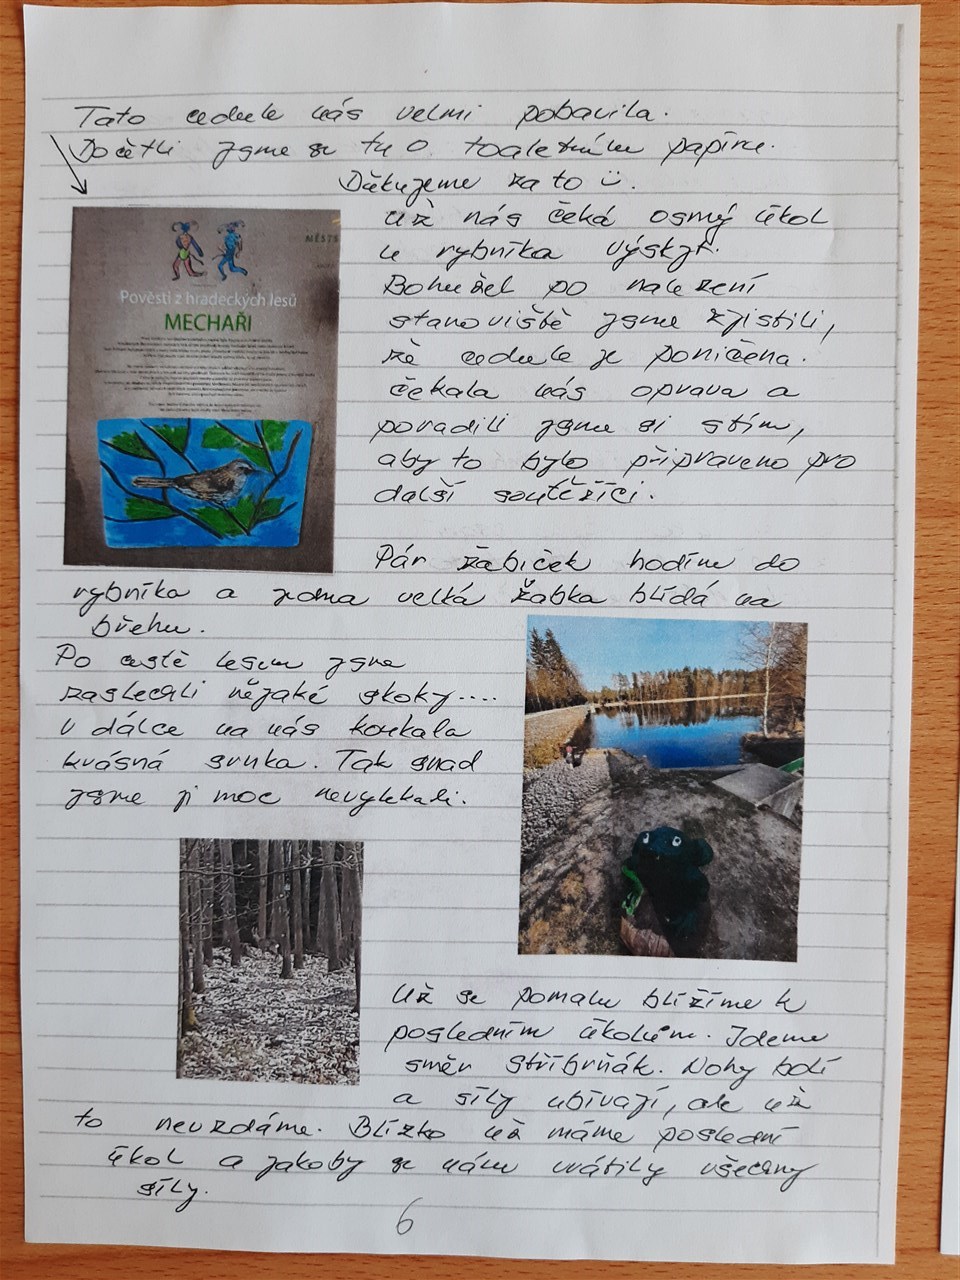 Tato cedule nás velmi pobavila.
Dočetli jsme se tu o toaletním papíru.
Děkujeme za to
Už nás čeká osmý úkol
u rybníka Výskyt.
Bohužel po nalezení
stanoviště jsme zjistili,
že cedule je poničena.
čekala nás oprava a
poradili jsme si stím,
aby to bylo připraveno pro
další soutěžící.
MĚSTS
Pověsti z hradeckých lesů
MECHAŘI
Pár žabiček hodíme do
rybníka a jedna velká žabka hlídá na
břehu.
Po cestě lesem jsme
zaslechli nějaké skoky....
V dálce na nás koukala
krásná srnka. Tak snad
jsme ji moc nevylekali.
Už se pomalu blížíme k
posledním úkolům. Jdeme
směr Stříbrňák. Nohy bolí
a síly ubívají, ale už
to nevzdáme. Blízko už máme poslední
úkol a jakoby se nám vrátily všechny
síly.
6